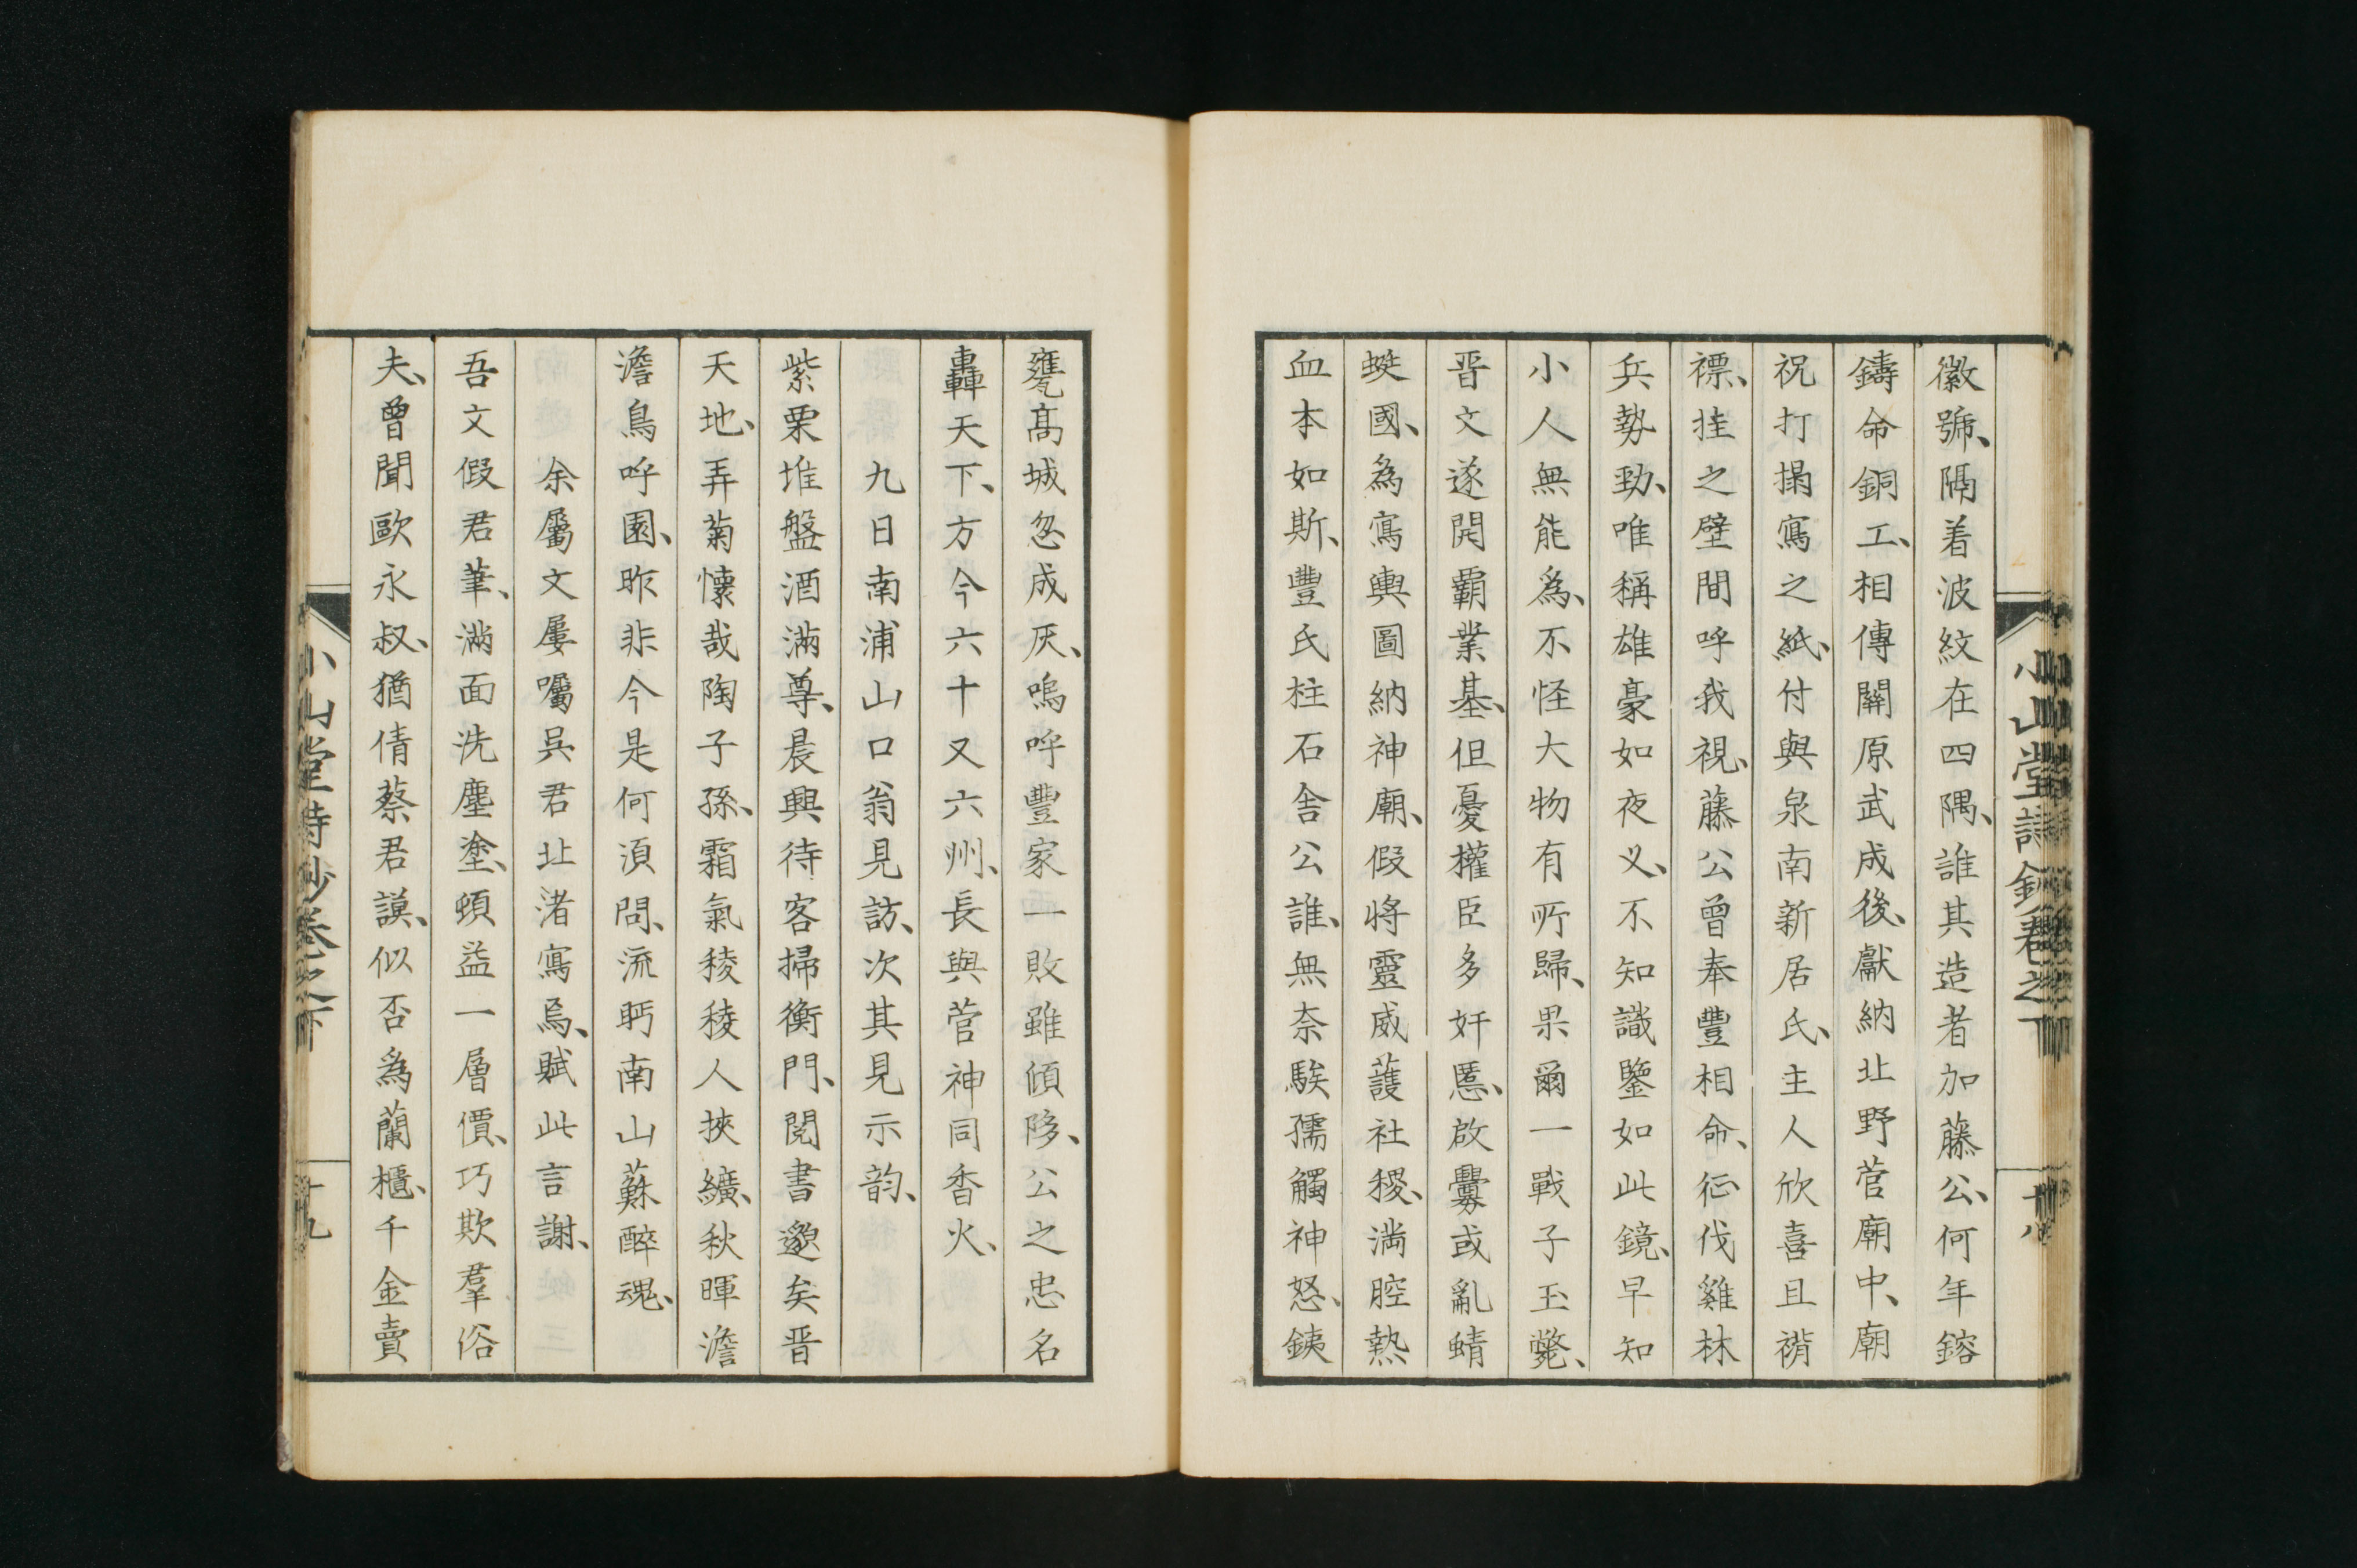 徽號、隔着波紋在四隅、誰其造者加藤公、何年鎔
鑄命銅工、相傳關原武成後、獻納北野菅廟中、廟
祝打搨寫之紙、付與泉南新居氏、主人欣喜且褙
褾、挂之壁間呼我視、藤公曾奉豐相命、征伐雞林
兵勢勁、唯稱雄豪如夜叉、不知識鑒如此鏡、早知
小人無能為、不怪大物有所歸、果爾一戰子玉斃、
晋文遂開霸業基、但憂權臣多奸慝、啟釁或亂蜻
蜓國、為寫輿圖納神廟、假将靈威護社稷、満腔熱
血本如斯、豐氏柱石舍公誰、無奈騃孺觸神怒、銕
小山堂詩鈔卷之下
十八
甕髙城忽成灰、嗚呼豐家一敗雖傾陊、公之忠名
轟天下、方今六十又六州、長與菅神同香火、
九日南浦山口翁見訪、次其見示韵、
紫栗堆盤酒滿尊、晨興待客掃衡門、閱書邈矣晋
天地、弄菊懷哉陶子孫、霜氣稜稜人挾纊、秋暉澹
澹鳥呼園、昨非今是何須問、流眄南山蘇醉魂、
余屬文屢囑吳君北渚寫焉、賦此言謝、
吾文假君筆、滿面洗塵塗、頓益一層價、巧欺羣俗
夫、曾聞歐永叔、猶倩蔡君謨、似否為蘭櫃、千金賣
小山堂詩鈔卷之下
十九